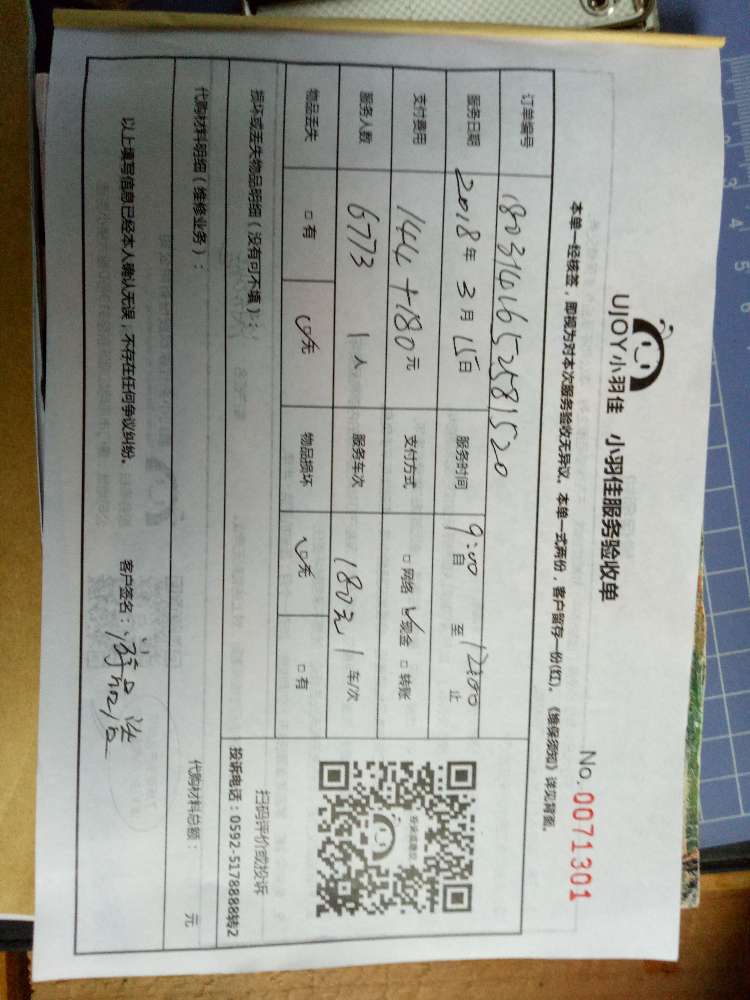 UJOY小羽佳 小羽佳服务验收单
No. 0071301
本单一经核签，即视为对本次服务验收无异议。本单一式两份，客户留存一份(红)。《维保须知》详见背面。
订单编号 1803141652581520
服务日期 2018年 3月 15日 服务时间 9:00 自 至 12:00 止
支付费用 144+180元 支付方式 □网络 ☑现金 □转账
服务人数 6773 1人 服务车次 180元 1车/次
物品丢失 □有 ☑无 物品损坏 ☑无 □有
损坏或丢失物品明细（没有可不填）：
扫码评价或投诉
投诉电话：0592-5178888转2
代购材料明细（维修业务）： 代购材料总额： 元
以上填写信息已经本人确认无误，不存在任何争议纠纷。 客户签名：